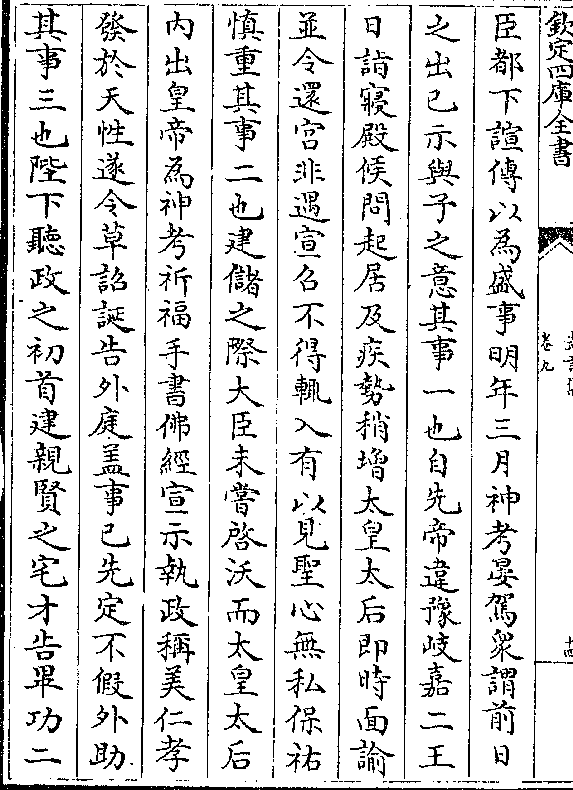 欽定四庫全書
卷九
臣都下諠傳以為盛事明年三月神考晏駕衆謂前日
之出已示與子之意其事一也自先帝違豫岐嘉二王
日詣寢殿候問起居及疾勢稍增太皇太后即時面諭
並令還宫非遇宣召不得輒入有以見聖心無私保祐
慎重其事二也建儲之際大臣未嘗啓沃而太皇太后
内出皇帝為神考祈福手書佛經宣示執政稱美仁孝
發於天性遂令草詔誕告外庭蓋事已先定不假外助
其事三也陛下聽政之初首建親賢之宅才告畢功二